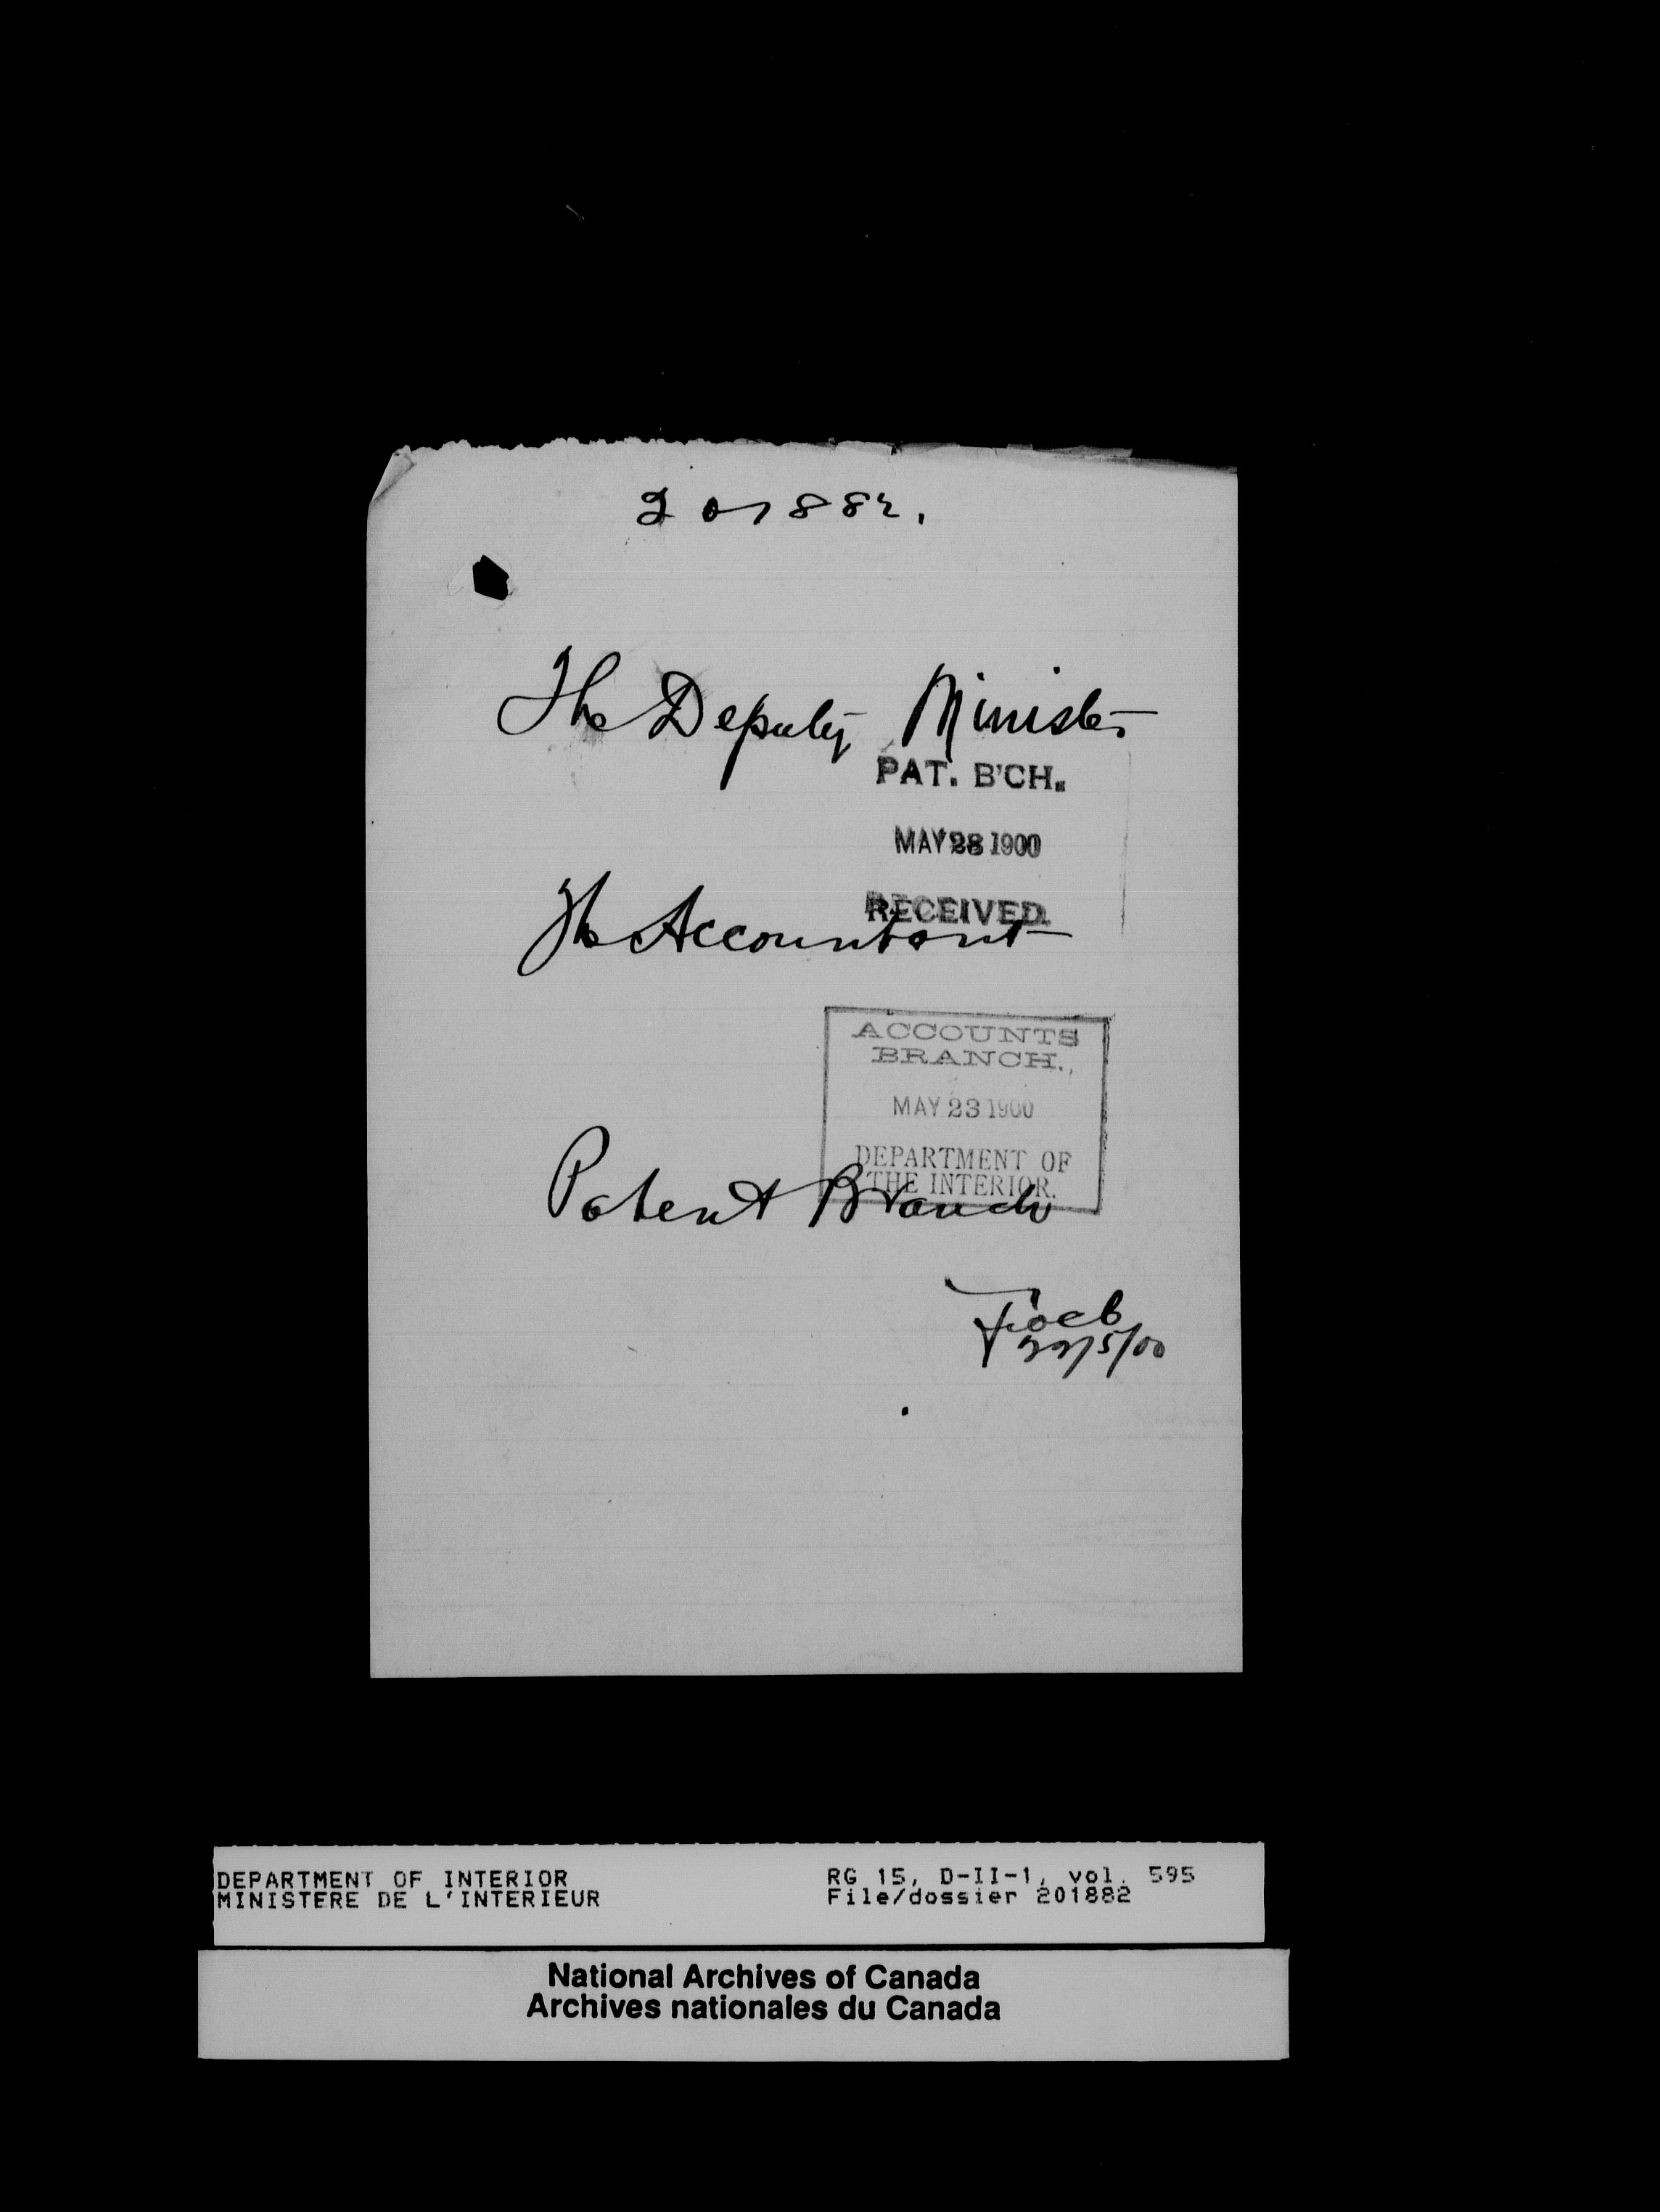 201882.
The Deputy Minister
PAT. B'CH.
MAY 28 1900
RECEIVED.
The Accountant
ACCOUNTS
BRANCH.,
MAY 23 1900
DEPARTMENT OF
THE INTERIOR.
Patent Branch
22/5/00
DEPARTMENT OF INTERIOR
MINISTERE DE L'INTERIEUR
RG 15, D-II-1, vol. 595
File/dossier 201882
National Archives of Canada
Archives nationales du Canada